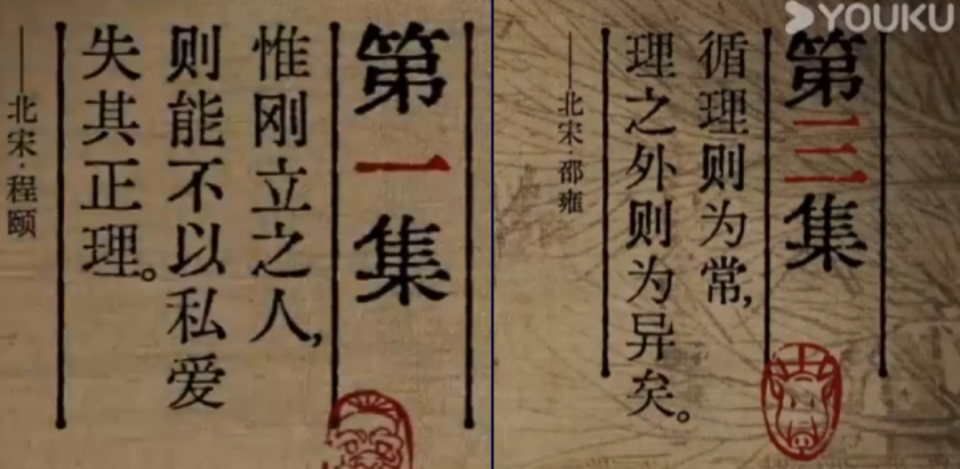 第一集
惟刚立之人，
则能不以私爱
失其正理。
——北宋·程颐
YOUKU
第三集
循理则为常，
理之外则为异矣。
——北宋·邵雍